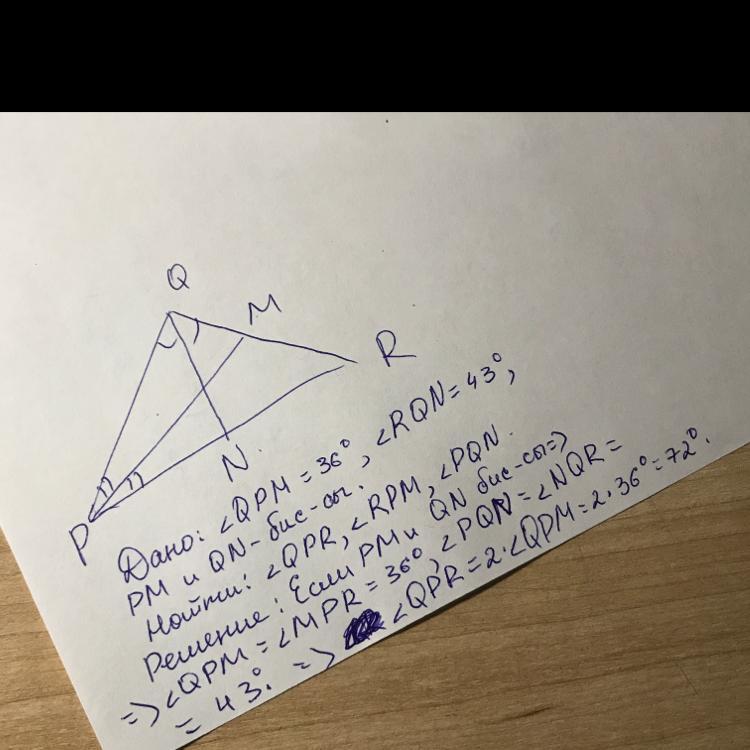 Q
M
R
N
P
Дано: ∠QPM = 36°, ∠RQN = 43°,
PM и QN - бис-сы.
Найти: ∠QPR, ∠RPM, ∠PQN.
Решение: Если PM и QN бис-сы =>
=> ∠QPM = ∠MPR = 36°, ∠PQN = ∠NQR =
= 43°. => ∠QPR = 2·∠QPM = 2·36° = 72°.